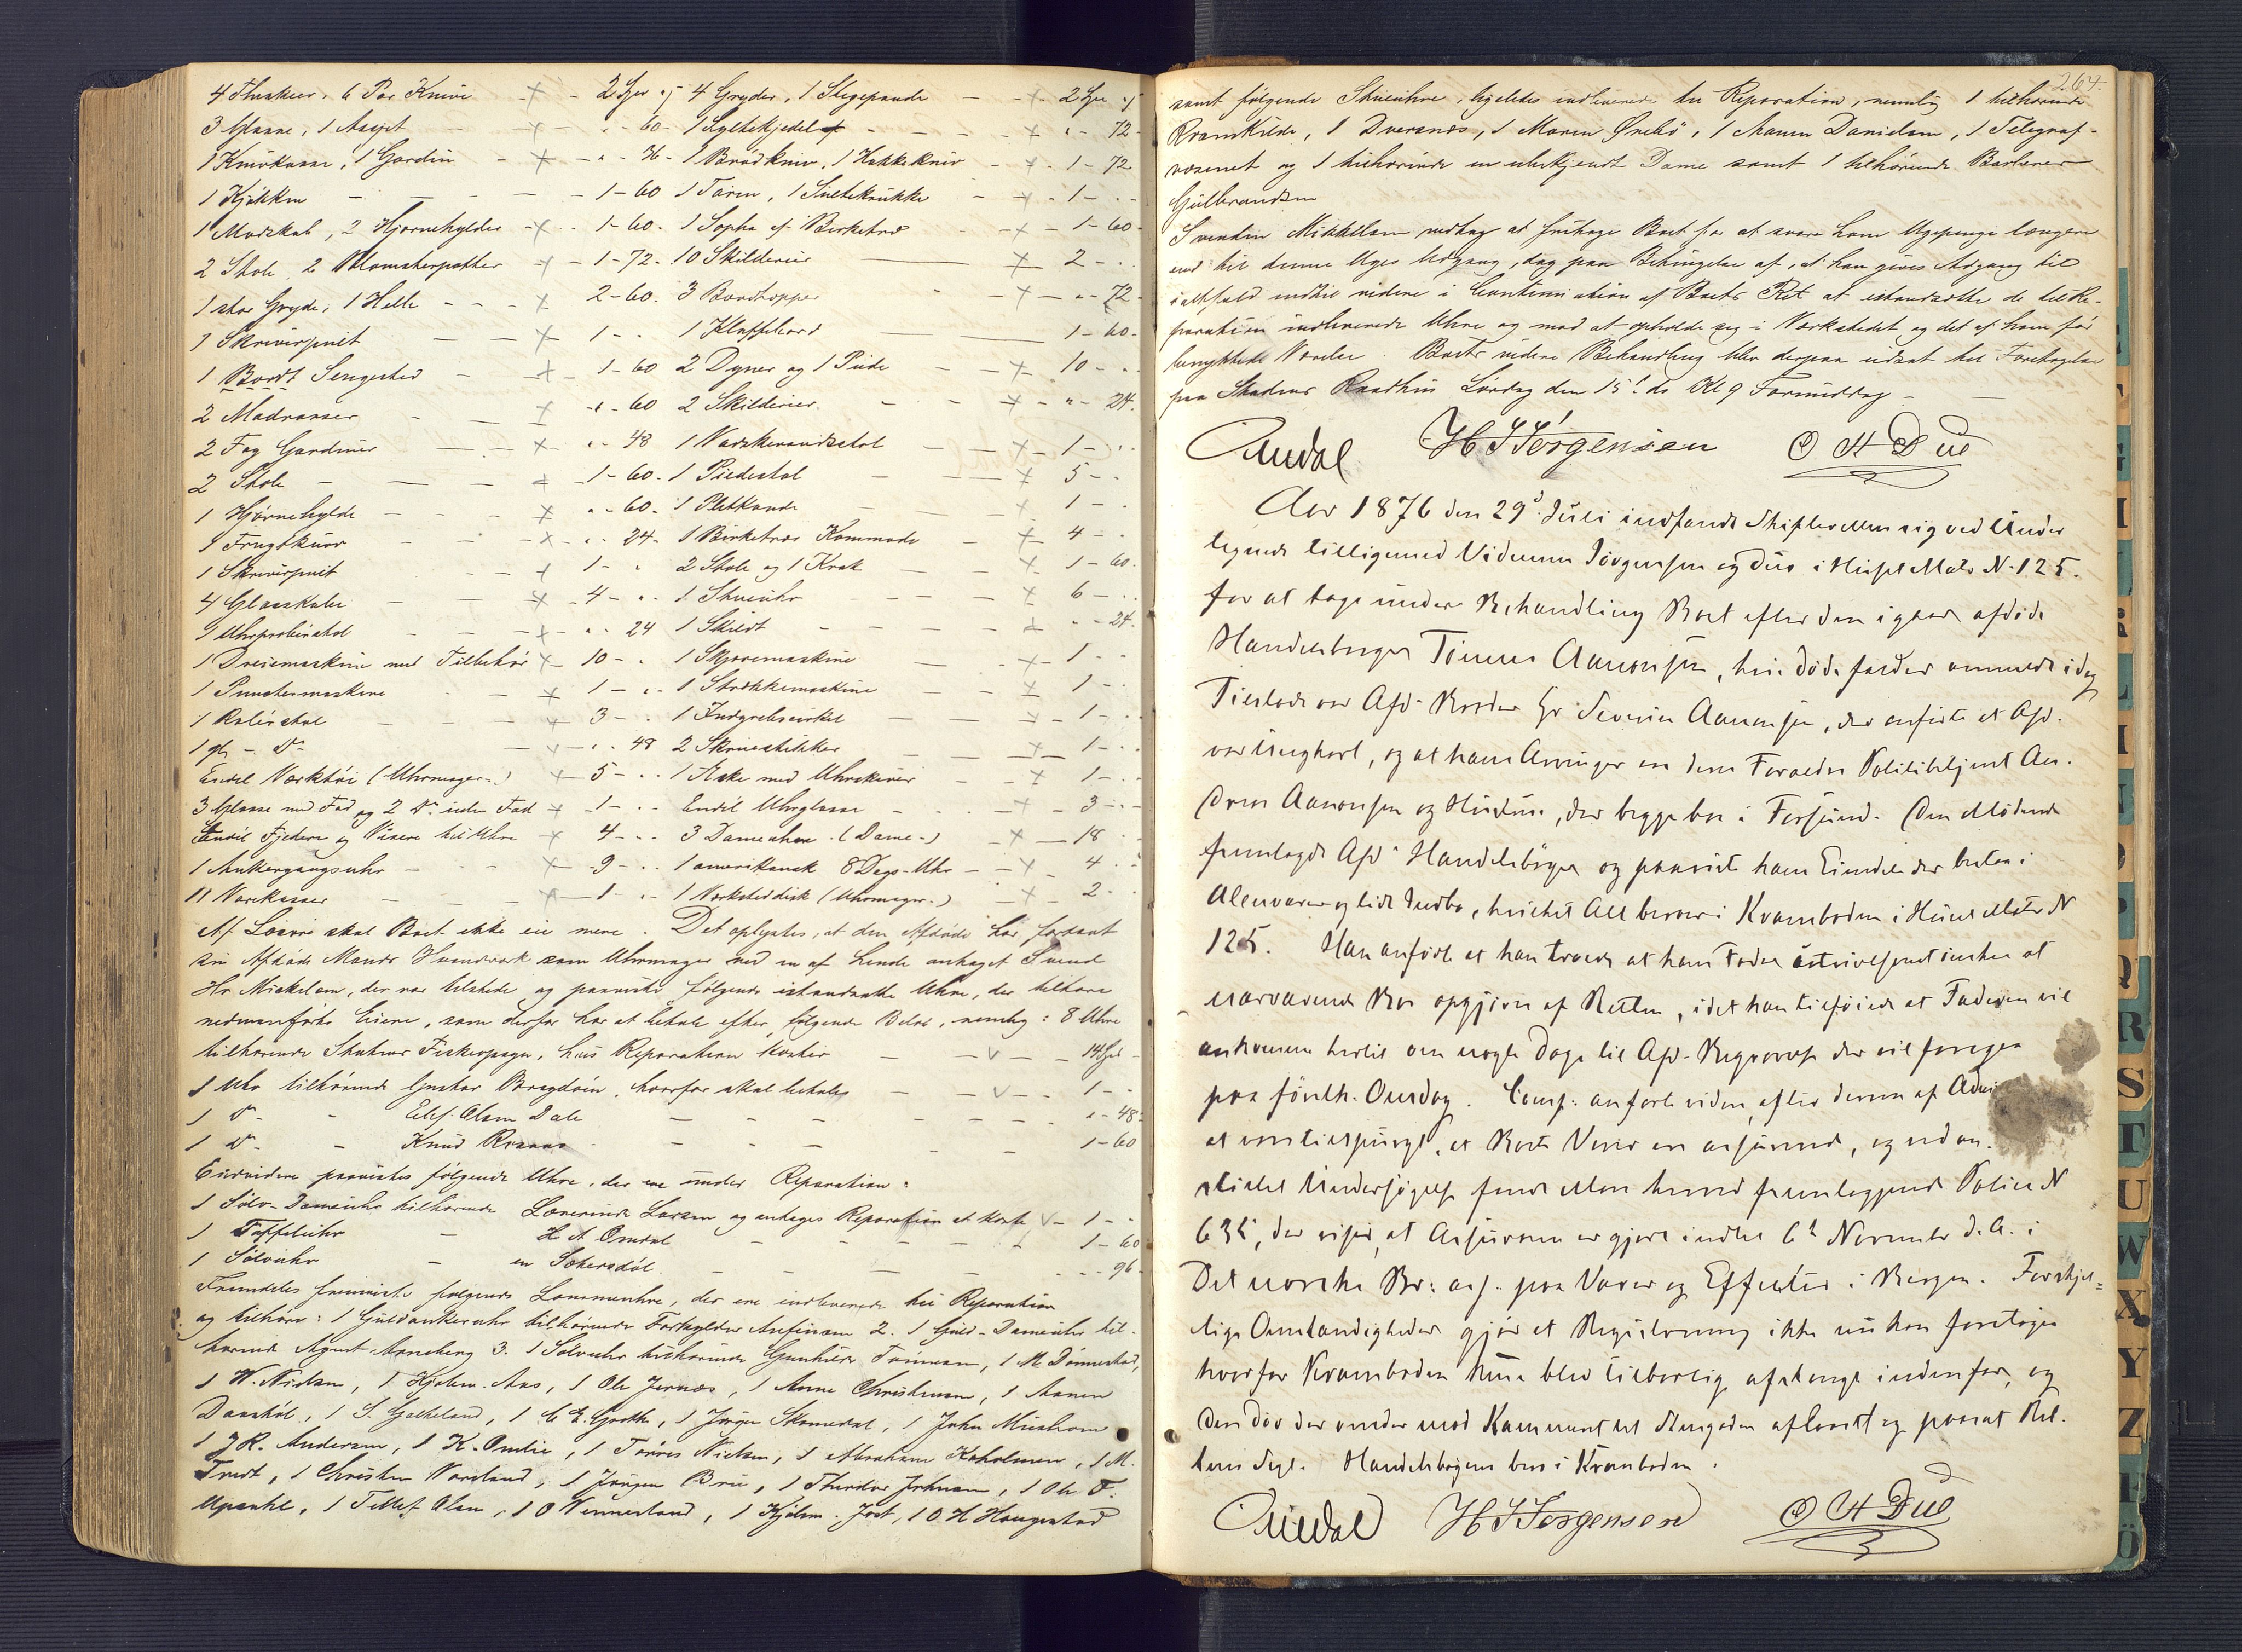 4 Flasker, 6 Par Knive - 2 Spd " ß 4 Gryder, 1 Stegepande - 2 Spd " ß
3 Glasse, 1 Asjet " - 60 - 1 Syltekjedel - " - 72 -
1 Knivkasse, 1 Gardin - " - 36 - 1 Brødkniv, 1 Hakkekniv - 1 - 72
1 Kjøkken - 1 - 60 1 Tørn, 1 Sultekrukke - 1 - "
1 Madskab, 2 Hjørnehylder - 1 - 60 - 1 Sopha af Birketræ - 1 - 60 -
2 Stole 2 Blomsterpotter - 1 - 72 - 10 Skilderier - 2 - "
1 stor Gryde, 1 Helle - 2 - 60. 3 Bordtopper - " - 72 -
1 Skriverpult - 1 - " 1 Klapbord - 1 - 60 -
1 Bordt Sengested - 1 - 60 2 Dyner og 1 Pude - 10 - "
2 Madrasser - " - 60 2 Skilderier - " - 24.
2 Fag Gardiner - " - 48 1 Vaskevandsstol - 1 - "
2 Stole - 1 - 60 - 1 Piedestal - 5 - "
1 Hjørnehylde - " - 60 - 1 Pletkande - 1 - "
1 Frugtkurv - " - 24 - 1 Birketræs Kommode - 4 - "
1 Skriverpult - 1 - " 2 Stole og 1 Krak - 1 - 60.
4 Glasskaler - 4 - " - 1 Stueuhr - 6 - "
1 Uhrprobérstol - " - 24 1 Skildt - " - 24 -
1 Dreiemaskine med Tilbehør - 10 - " 1 Skjæremaskine - 1 - "
1 Punchermaskine - 1 - " - 1 Strækkemaskine - 1 - "
1 Rulérstol - 3 - " 1 Indgrebscirkel - 1 - "
1 gl - Do - " - 48 2 Skruestikker - 1 - "
Endel Værktøi (Uhrmager-) - 5 - " - 1 Æske med Uhrskiver - 1 - "
3 Glasse med Fod og 2 Do uden Fod - 1 - " - Endel Uhrglasse - 3 - "
Endel Fjedere og Visere til Uhre - 4 - " 3 Dameuhre (Dame-) - 18
1 Ankergangsuhr - 9 - " 1 amerikansk 8 Dags-Uhr - 4 - "
11 Varekasser - 1 - " - 1 Værksteddisk (Uhrmager-) - 2 - "
Af Løsøre skal Boet ikke eie mere. Det oplystes, at den Afdøde har fortsat
sin Afdøde Mands Haandværk som Uhrmager ved en af hende antaget Svend
Hr Mickelsen, der var tilstede og paaviste følgende istandsatte Uhre, der tilhøre
nedenanførte Eiere, som derfor har at betale efter følgende Beløb, nemlig: 8 Uhre
tilhørende Statens Fiskeopsyn, hvis Reparation koster - 14 Spd -
1 Uhr tilhørende Gustav Bragdøn, hvorfor skal betales - 1 -
1 Do - Elef. Olsen Dale " - 48 -
1 Do - Knud 1 - 60
Endvidere paavistes følgende Uhre, der ere under Reparation:
1 Sølv-Dameuhr tilhørende Lærerinde Larsen og antages Reparation at koste - 1 - "
1 Taffeluhr - H A Omdal 1 - 60
1 Sølvuhr - en - 96 -
Fremdeles fremviste følgende Lommeuhre, der ere indleverede til Reparation
og tilhøre: 1 Guldankeruhr tilhørende Forgylder Anfinsen 2. 1 Guld-Dameuhr til-
hørende Agent Anneberg 3. 1 Sølvuhr tilhørende Gunhilde Tønnesen, 1 M. Dønnestad,
1 W. Nielsen, 1 Hjalm. Aas, 1 Ole Jernæs, 1 Anne Christensen, 1 Aanen
1 S. Galteland, 1 C. E. Grothe, 1 Jørgen Skomedal, 1 John
1 J R. Andersen, 1 K. Omlie, 1 Tørres Nielsen, 1 Abraham Kaholmen, 1 M.
Tvedt, 1 Christen Væreland, 1 Jørgen Brie, 1 Theodor Johnsen, 1 Ole T.
1 Tellef Olsen, 1 O Vennesland, 1 Hjalm. Jost, 1 O. H Haugestad
264.
samt følgende Stueuhre, ligeledes indleverede til Reparation, nemlig 1 tilhørende
1 Dversnæs, 1 Maren Ørebö, 1 Aanen Danielsen, 1 Telegraf-
væsenet og 1 tilhørende en ubekjendt Dame samt 1 tilhørende Barberer
Gulbrandsen
Svenden Mikkelsen vedtog at fritage Boet for at svare ham Ugepenge længere
end til denne Uges Udgang, dog paa Betingelse af, at han gives Adgang til
ialtfald indtil videre i Continuation af Boets Ret at istandsætte de til Re-
paration indleverede Uhre og med at opholde sig i Værkstedet og det af ham før
benyttede Værelse. Boets videre Behandling blev derpaa udsat til Foretagelse
paa Stadens Raadhus Lørdag den 15de ds Kl 9 Formiddag -
Omdal H J Jörgensen O H Due
Aar 1876 den 29de Juli indfandt Skifteretten sig ved Under
tegnede tilligemed Vidnerne Jörgensen og Due i Huset Matr N. 125.
for at tage under Behandling Boet efter den igaar afdöde
Handelsborger Tönnes Aanonsen, hvis Dödsfald er anmeldt idag
Tilstede var Afd. Broder Hr Severin Aanonsen, der anförte at Afd.
var Ungkarl, og at hans Arvinger ere dens Forældre Politibetjent An-
dreas Aanonsen og Hustru, der begge bor i Farsund. Den Mödende
fremlagde Afds Handelsböger og paaviste hans Eiendele der bestaa i
Alenvarer og lidt Indbo, hvilket Alt beror i Krambodn i Huset Matr N
125. Han anförte at han troede at hans Fader utvivlsomt önsker at
nærværende Bo opgjöres af Retten, idet han tilföiede at Faderen vil
ankomme hertil om nogle Dage til Afd. Begravelse der vil foregaa
paa förstk. Onsdag. Comp: anförte videre, efter derom af Admi
at være tilspurgt, at Boets Varer ere assureret, og ved an-
stillet Undersögelse fandt Man herved fremlæggende Police N
635, der viser, at Assurancen er gjort indtil 6te November d. A. i
Det norske Br: ass. paa Varer og Effecter i Bergen. Forskjel-
lige Omstændigheder gjör at Registrering ikke nu kan foretages
hvorfor Kramboden kun blev tilbörlig afstængt indenfor, og
den Dör der vender mod Kammeret ved Strugaden aflaaset og paasat Ret-
tens Segl. Handelsbögerne bero i Kramboden.
Omdal H J Jörgensen O H Due
E
F
G
H
I
K
L
M
N
O
P
Q
R
S
T
U
W
X
Y
Z
Æ
Ö